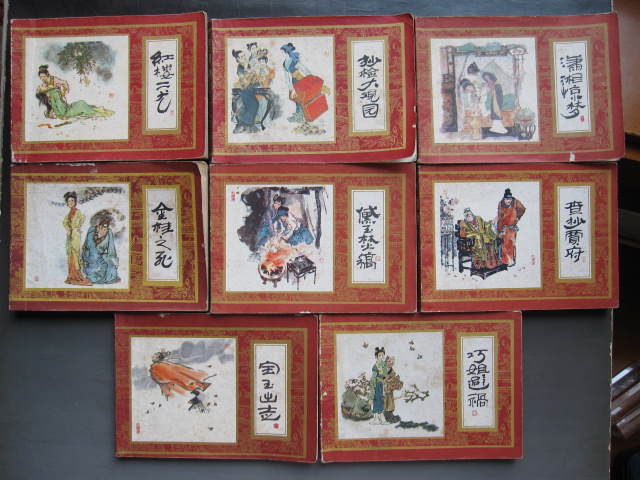 红楼二尤
抄检大观园
潇湘惊梦
金桂之死
黛玉焚稿
查抄贾府
宝玉出走
巧姐避祸